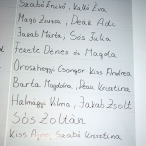 Szabó Enikő, Kelló Éva
Magó Zsuzsa, Deák Adri
Jakab Márta, Sós Julia
Fekete Dénes és Magda
Orosházi Csongor Kiss Andrea
Barta Magdolna, Deák Krisztina
Halmágyi Vilma, Jakab Zsolt
Sós Zoltán
Kiss Ajna, Szabó Krisztina